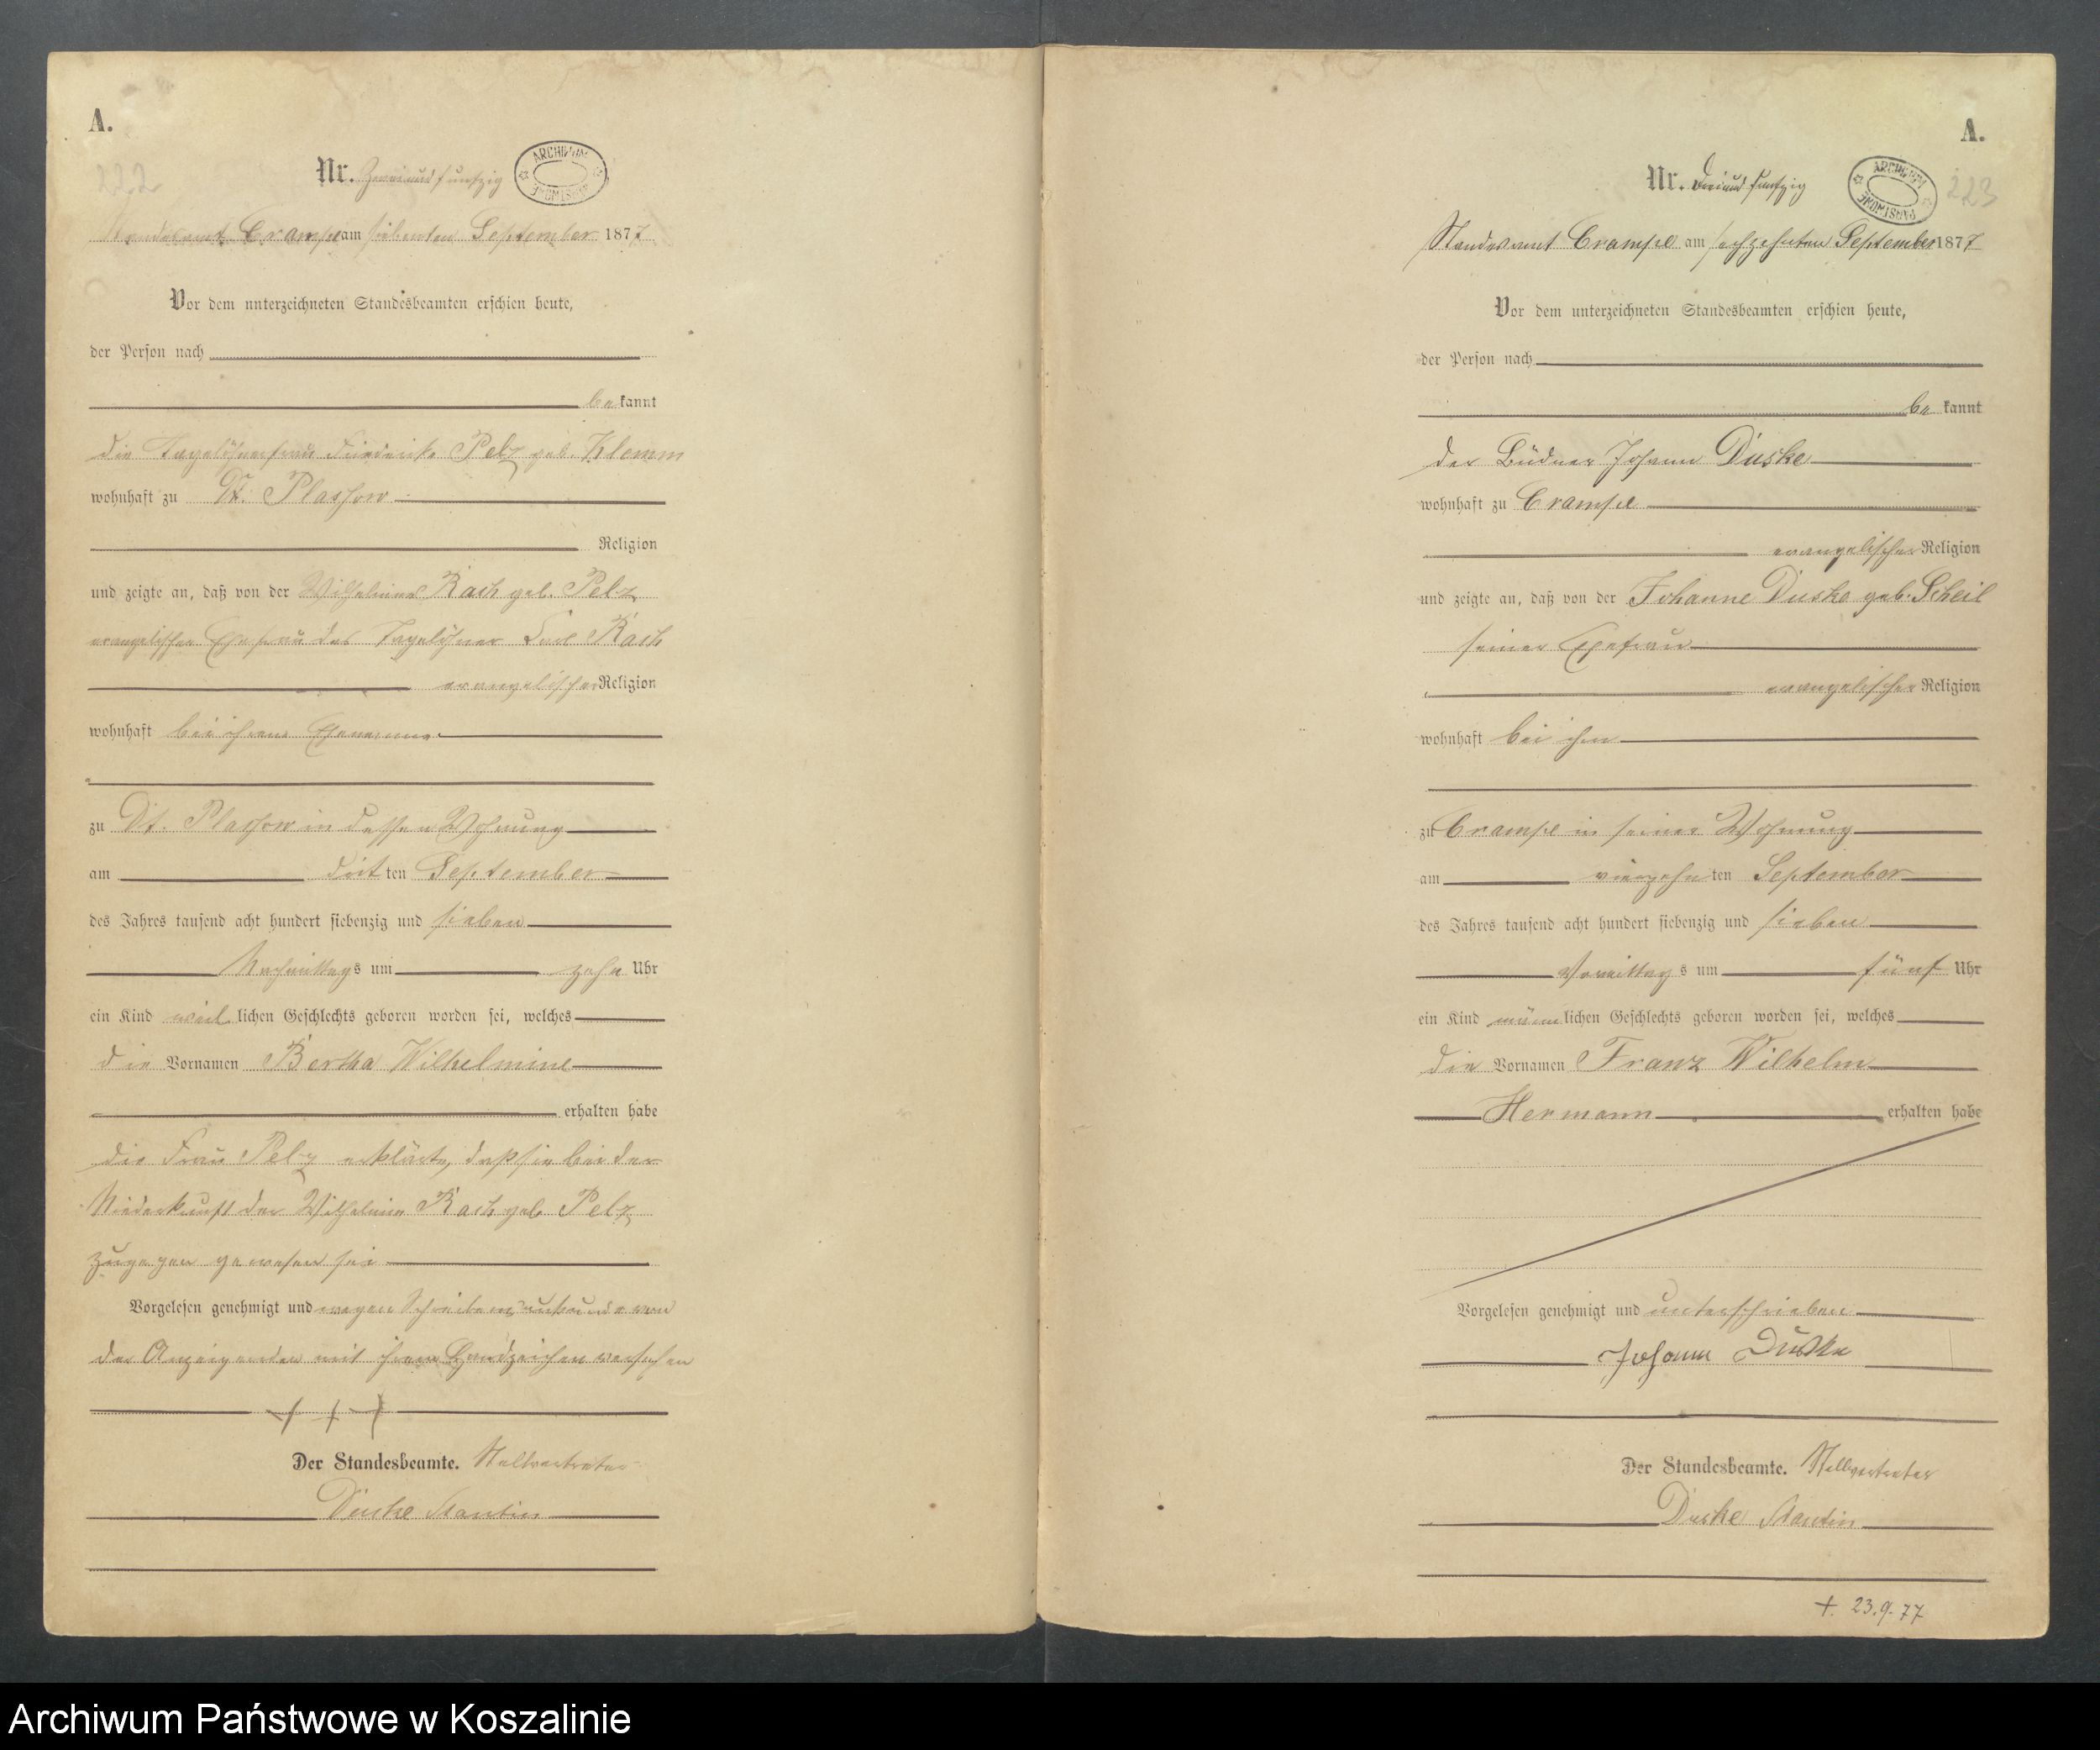 A.
222
Nr. Zweiundfunfzig
ARCHIWUM PAŃSTWOWE
Standesamt Crampe am siebenten September 1877
Vor dem unterzeichneten Standesbeamten erschien heute,
der Person nach
bekannt
die Tagelöhnerfrau Friedericke Pelz geb. Klemm
wohnhaft zu Dt. Plassow
Religion
und zeigte an, daß von der Wilhelmine Rach geb. Pelz
evangelischen Ehefrau des Tagelöhner Carl Rach
evangelischer Religion
wohnhaft bei ihrem Ehemanne
zu Dt. Plassow in dessen Wohnung
am dritten September
des Jahres tausend acht hundert siebenzig und sieben
Nachmittags um zehn Uhr
ein Kind weiblichen Geschlechts geboren worden sei, welches
die Vornamen Bertha Wilhelmine
erhalten habe
die Frau Pelz erklärte, daß sie bei der
Niederkunft der Wilhelmine Rach geb Pelz
zugegen gewesen sei
Vorgelesen genehmigt und wegen Schreibensunkunde von
der Anzeigenden mit ihrem Handzeichen versehen
+ + +
Der Standesbeamte. Stellvertreter
Duske Stantin
A.
223
Nr. Dreiundfunfzig
ARCHIWUM PAŃSTWOWE
Standesamt Crampe am sechzehnten September 1877
Vor dem unterzeichneten Standesbeamten erschien heute,
der Person nach
bekannt
der Büdner Johann Duske
wohnhaft zu Crampe
evangelischer Religion
und zeigte an, daß von der Johanne Duske geb. Scheil
seiner Ehefrau
evangelischer Religion
wohnhaft bei ihm
zu Crampe in seiner Wohnung
am vierzehnten September
des Jahres tausend acht hundert siebenzig und sieben
Vormittags um fünf Uhr
ein Kind männlichen Geschlechts geboren worden sei, welches
die Vornamen Franz Wilhelm
Hermann erhalten habe
Vorgelesen genehmigt und unterschrieben
Johann Duske
Der Standesbeamte. Stellvertreter
Duske Stantin
+. 23.9.77
Archiwum Państwowe w Koszalinie